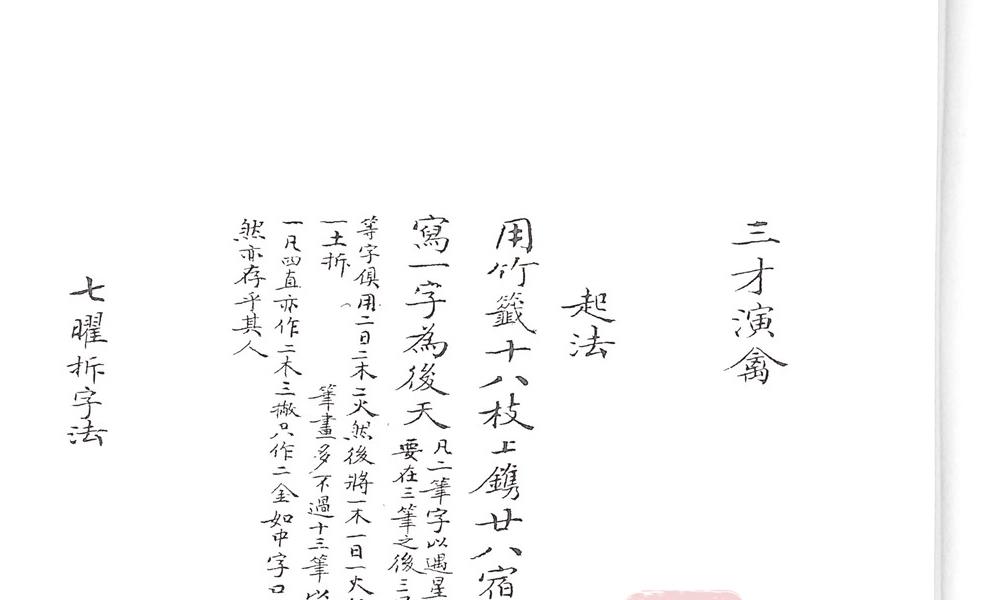 三才演禽
起法
用竹籤十八枝上鐫廿八宿
寫一字為後天
凡二筆字以遇星
要在三筆之後三
等字俱用二日二木二火然後將一木一日一火
一土拆 筆畫多不過十三筆
一凡四直亦作二木三撇只作二金如中字口
然亦存乎其人
七曜拆字法